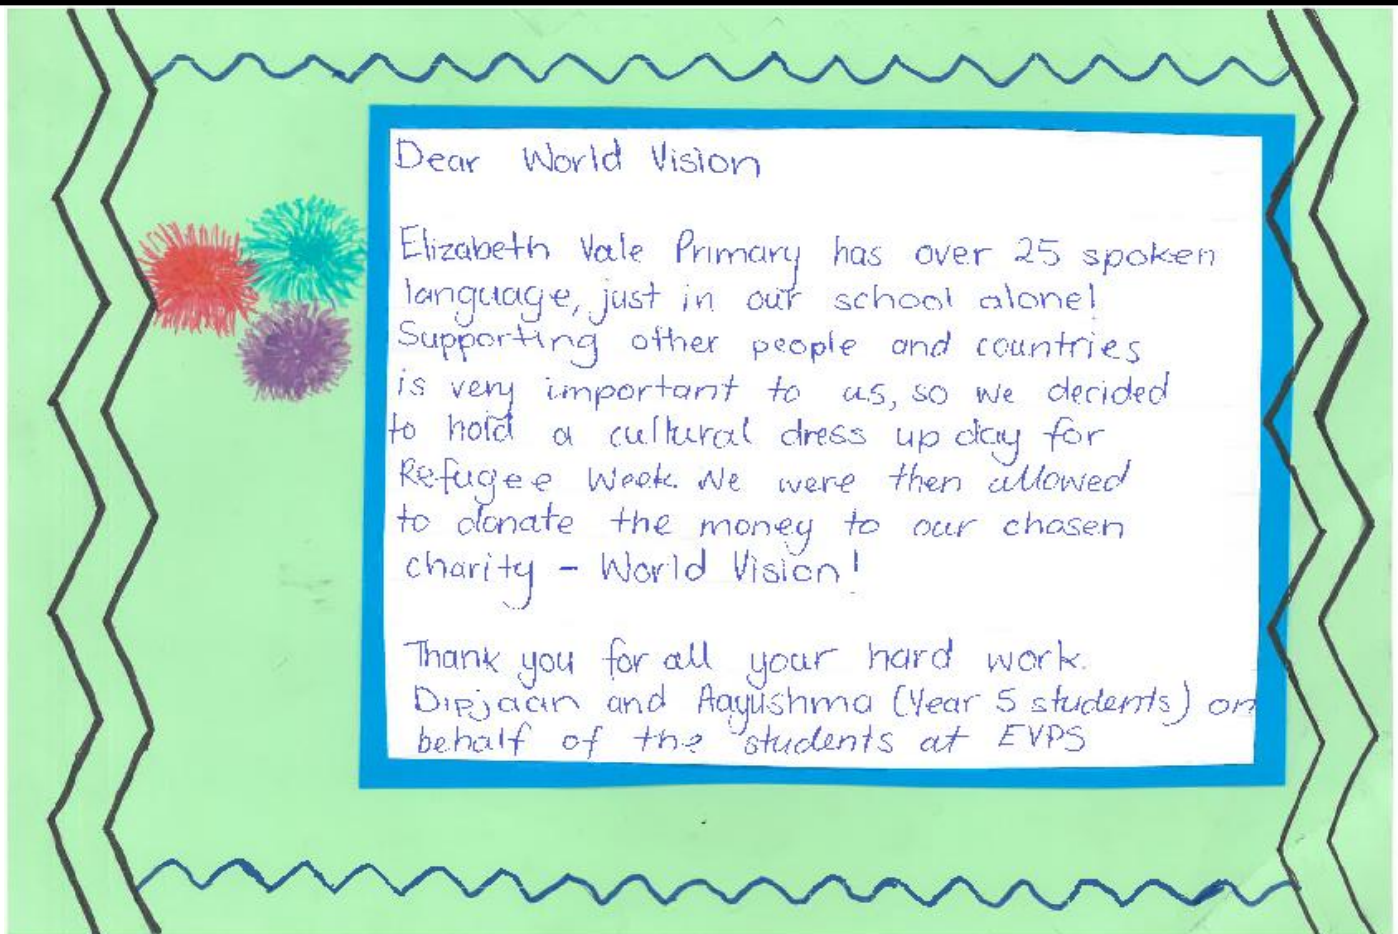 Dear World Vision
Elizabeth Vale Primary has over 25 spoken
language, just in our school alone!
Supporting other people and countries
is very important to us, so we decided
to hold a cultural dress up day for
Refugee Week. We were then allowed
to donate the money to our chosen
charity - World Vision!
Thank you for all your hard work.
Dipjaan and Aayushma (Year 5 students) on
behalf of the students at EVPS